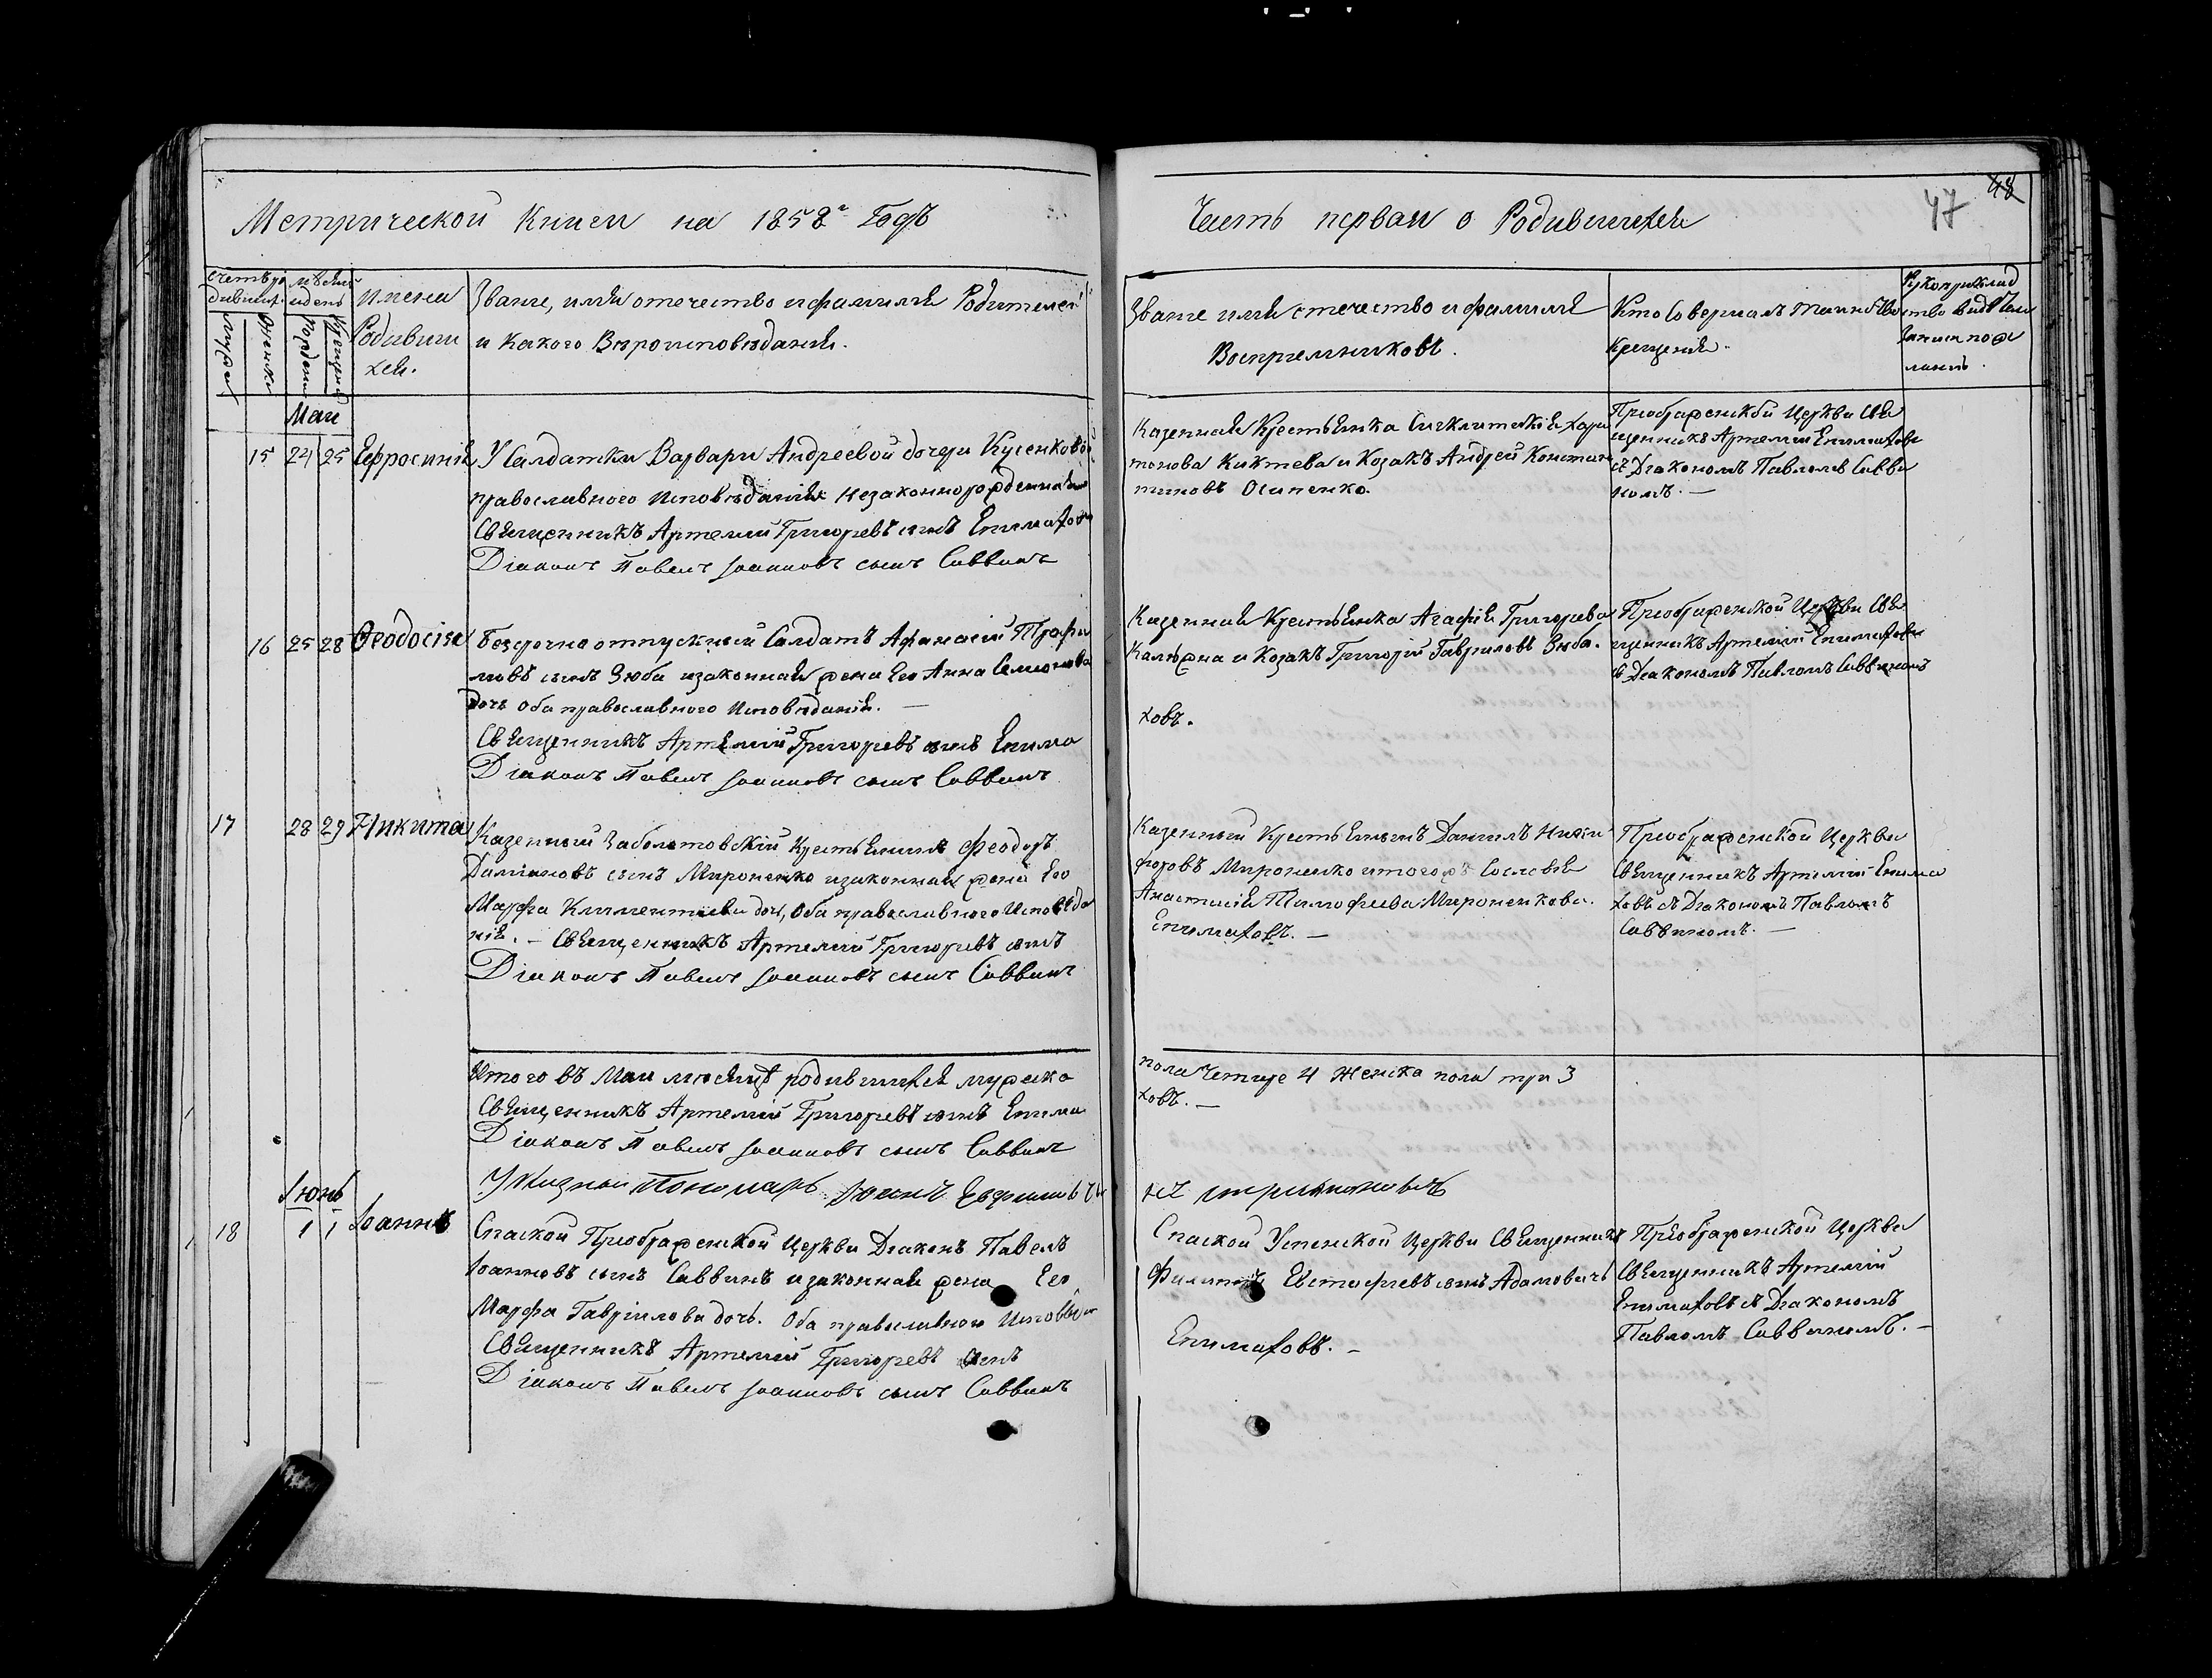 Метрической Книги на 1858й Годъ
Часть первая о Родившихся
47
48
Счетъ ро
дивших.
мѣсяцъ
и день
Имена
Родивши
хся.
Званіе, имя отечество и фамилія Родителей
и Какого Вѣроисповѣданія.
Мужеска
Женска
Рожденія
Крещенія
Званіе имя отечество и фамилія
Воспріемниковъ.
Кто Совершалъ таинство
Крещенія.
Рукоприклад
ство Свидѣтел
записи по же
ланію.
Май
15 24 25 Ефросинія У Салдатки Варвари Андреевой дочери Кусенковой
православного Исповѣданія Незаконнорожденная
Священникъ Артемій Григоревъ сынъ Епимахов
Діаконъ Павелъ Іоанновъ сынъ Саввинъ
Казенная Крестьянка Сигклитикія Хари
тонова Киктева и Козакъ Андрей Констан
тиновъ Осипенко.
Преображенской Церкви Свя
щенникъ Артемій Епимаховъ
съ Діакономъ Павломъ Савви
номъ. —
16 25 28 Ѳеодосія Безсрочно отпускный Салдатъ Афанасій Трофи
мовъ сынъ Зюба и законная жена Его Анна Семионова
дочь Оба православного Исповѣданія. —
Священникъ Артемій Григоревъ сынъ Епима
Діаконъ Павелъ Іоанновъ сынъ Саввинъ
Казенная Крестьянка Агафія Григорева
Калюжна и Козакъ Григорій Гавриловъ Зюба.
ховъ.
Преображенской Церкви Свя
щенникъ Артемій Епимаховъ
съ Діакономъ Павломъ Саввиномъ
17 28 29 Никита Казенный Заболотовскій Крестьянинъ Феодоръ
Даміановъ сынъ Мироненко и законная жена Его
Марфа Климентиева дочь, Оба православного Исповѣда
нія. — Священникъ Артемій Григоревъ сынъ
Діаконъ Павелъ Іоанновъ сынъ Саввинъ
Казенный Крестьянинъ Даниилъ Ники
форовъ Мироненко и того жъ Сословія
Анастасія Тимофеева Мироненкова.
Епимаховъ. —
Преображенской Церкви
Священникъ Артемій Епима
ховъ съ Діакономъ Павломъ
Саввиномъ. —
Итого въ Маи мѣсяцѣ родившихся мужеска
Священникъ Артемій Григоревъ сынъ Епима
Діаконъ Павелъ Іоанновъ сынъ Саввинъ
Указной Пономарь Іоанъ
пола Четире 4 Женска пола три 3
ховъ. —
Іюнь
18 1 1 Іоаннъ Спаской Преображенской Церкви Діаконъ Павелъ
Іоанновъ сынъ Саввинъ и законная жена Его
Марфа Гавріилова дочь. Оба православного Исповѣдан
Священникъ Артемій Григоревъ сынъ
Діаконъ Павелъ Іоанновъ сынъ Саввинъ
Спаской Успенской Церкви Священникъ
Филиппъ Евстафіевъ сынъ Адамовичъ
Епимаховъ. —
Преображенской Церкви
Священникъ Артемій
Епимаховъ съ Діакономъ
Павломъ Саввиномъ. —